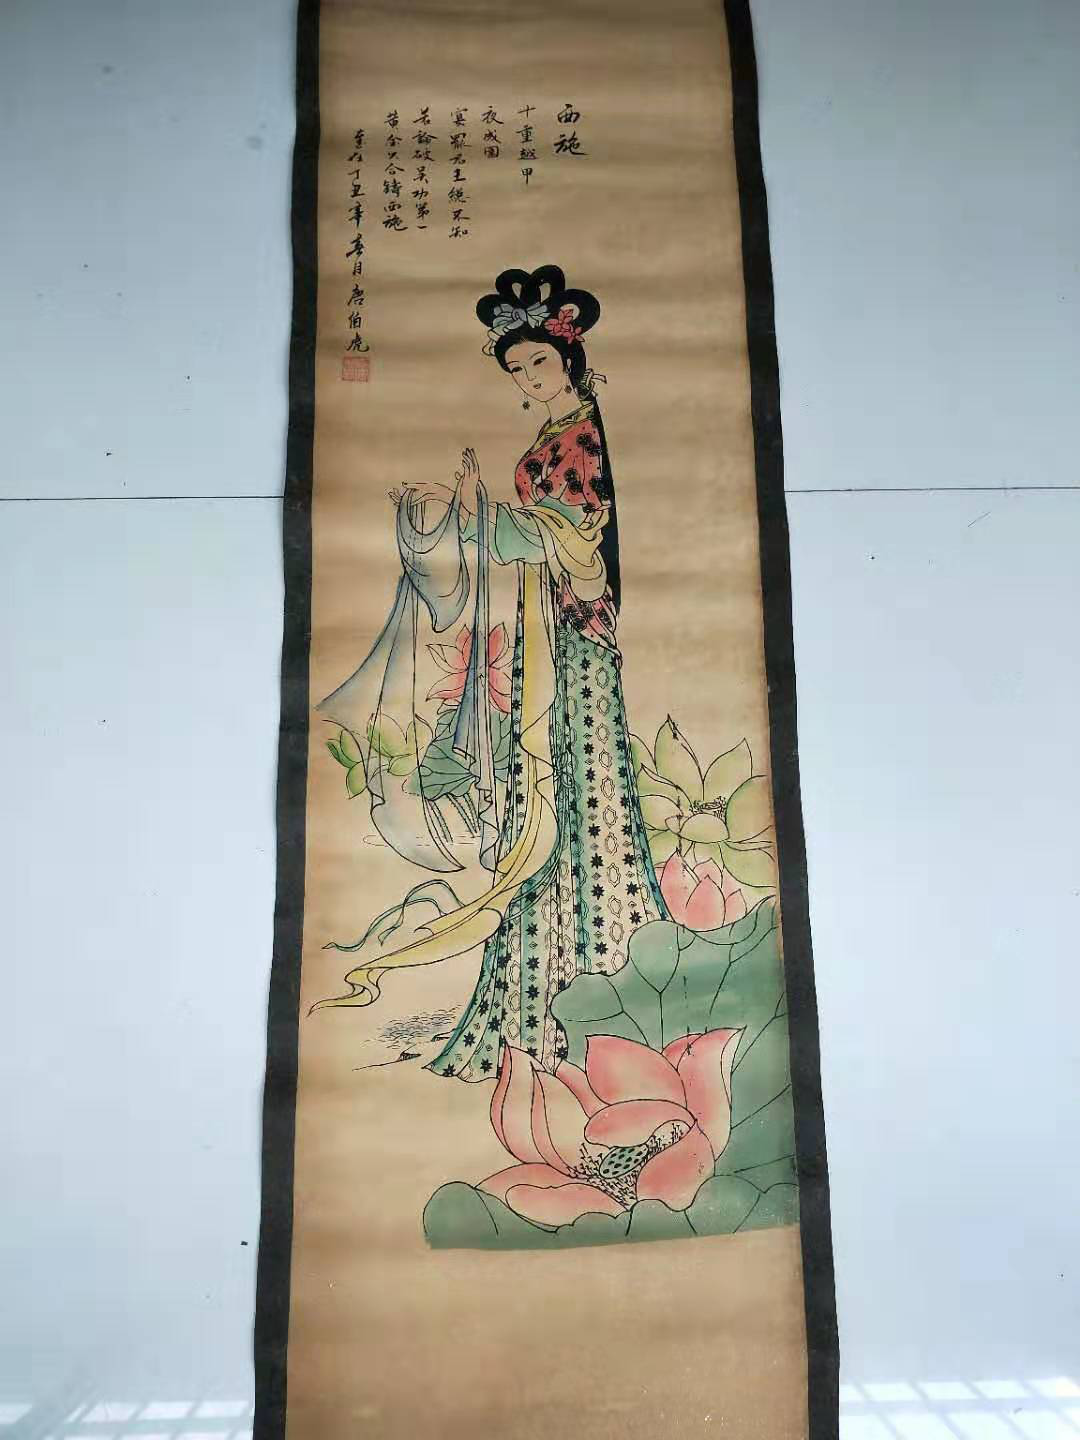 西施
十重越甲
夜成围
宴罢君王总不知
若论破吴功第一
黄金只合铸西施
丁丑年春月唐伯虎